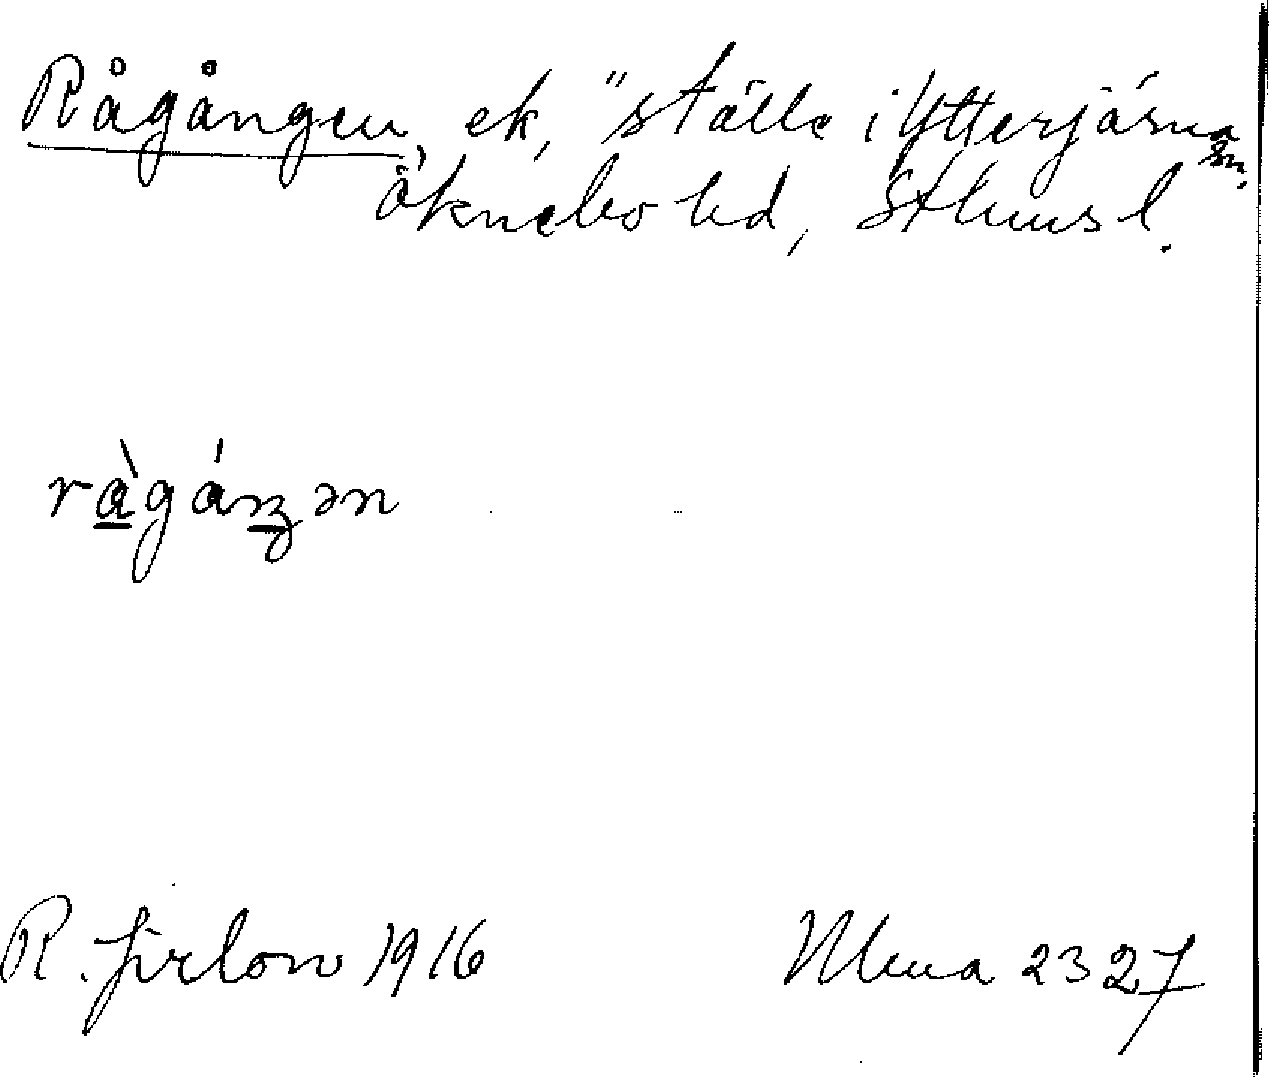 Rågången, ek, "ställe i Ytterjärna sn.
Öknebo hd, Sthms l.
R. Jirlow 1916
Ulma 2327